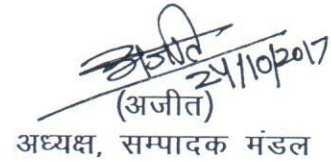 अजीत
24/10/2017
(अजीत)
अध्यक्ष, सम्पादक मंडल